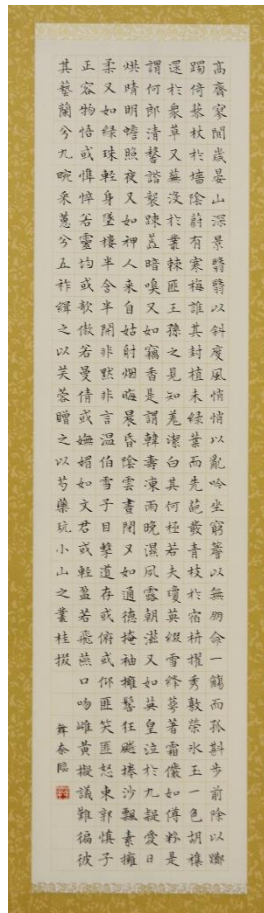 高齋寥闃歲晏山深景翳翳以斜度風悄悄以亂吟坐窮簷以無朋命一觴而孤斟步前除以躑
躅倚藜杖於墻陰蔚有寒梅誰其封植未綠葉而先葩叢青枝於宿枿擢秀敷榮冰玉一色胡襍
遝於衆草又蕪沒於叢棘匪王孫之見知羌潔白其何極若夫瓊英綴雪絳萼著霜儼如傅粉是
謂何郎清馨諧襲疎蕋暗嗅又如竊香是謂韓壽凍雨晚濕夙露朝滋又如英皇泣於九疑愛日
烘晴明蟾照夜又如神人來自姑射烟晦晨昏陰雲晝閉又如通德掩袖擁髻狂飇捲沙飄素摧
柔又如綠珠輕身墜樓半含半開非默非言温伯雪子目擊道存或俯或仰匪笑匪怒東郭慎子
正容物悟或憔悴若靈均或欹傲若曼倩或嫵媚如文君或輕盈若飛燕口吻雌黃擬議難徧彼
其藝蘭兮九畹采蕙兮五柞緝之以芙蓉贈之以芍藥玩小山之叢桂掇
舞泰臨